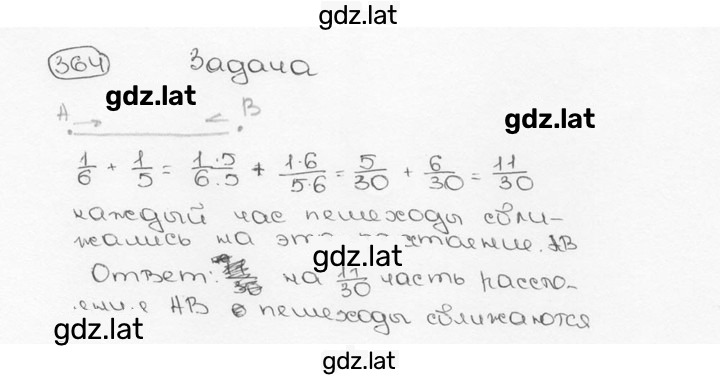 gdz.lat
364 Задача
gdz.lat
A B
gdz.lat
1/6 + 1/5 = 1·5/6·5 + 1·6/5·6 = 5/30 + 6/30 = 11/30
каждый час пешеходы сбли-
жались на это AB
gdz.lat
Ответ: на 11/30 часть рассто-
AB пешеходы сближаются
gdz.lat
gdz.lat